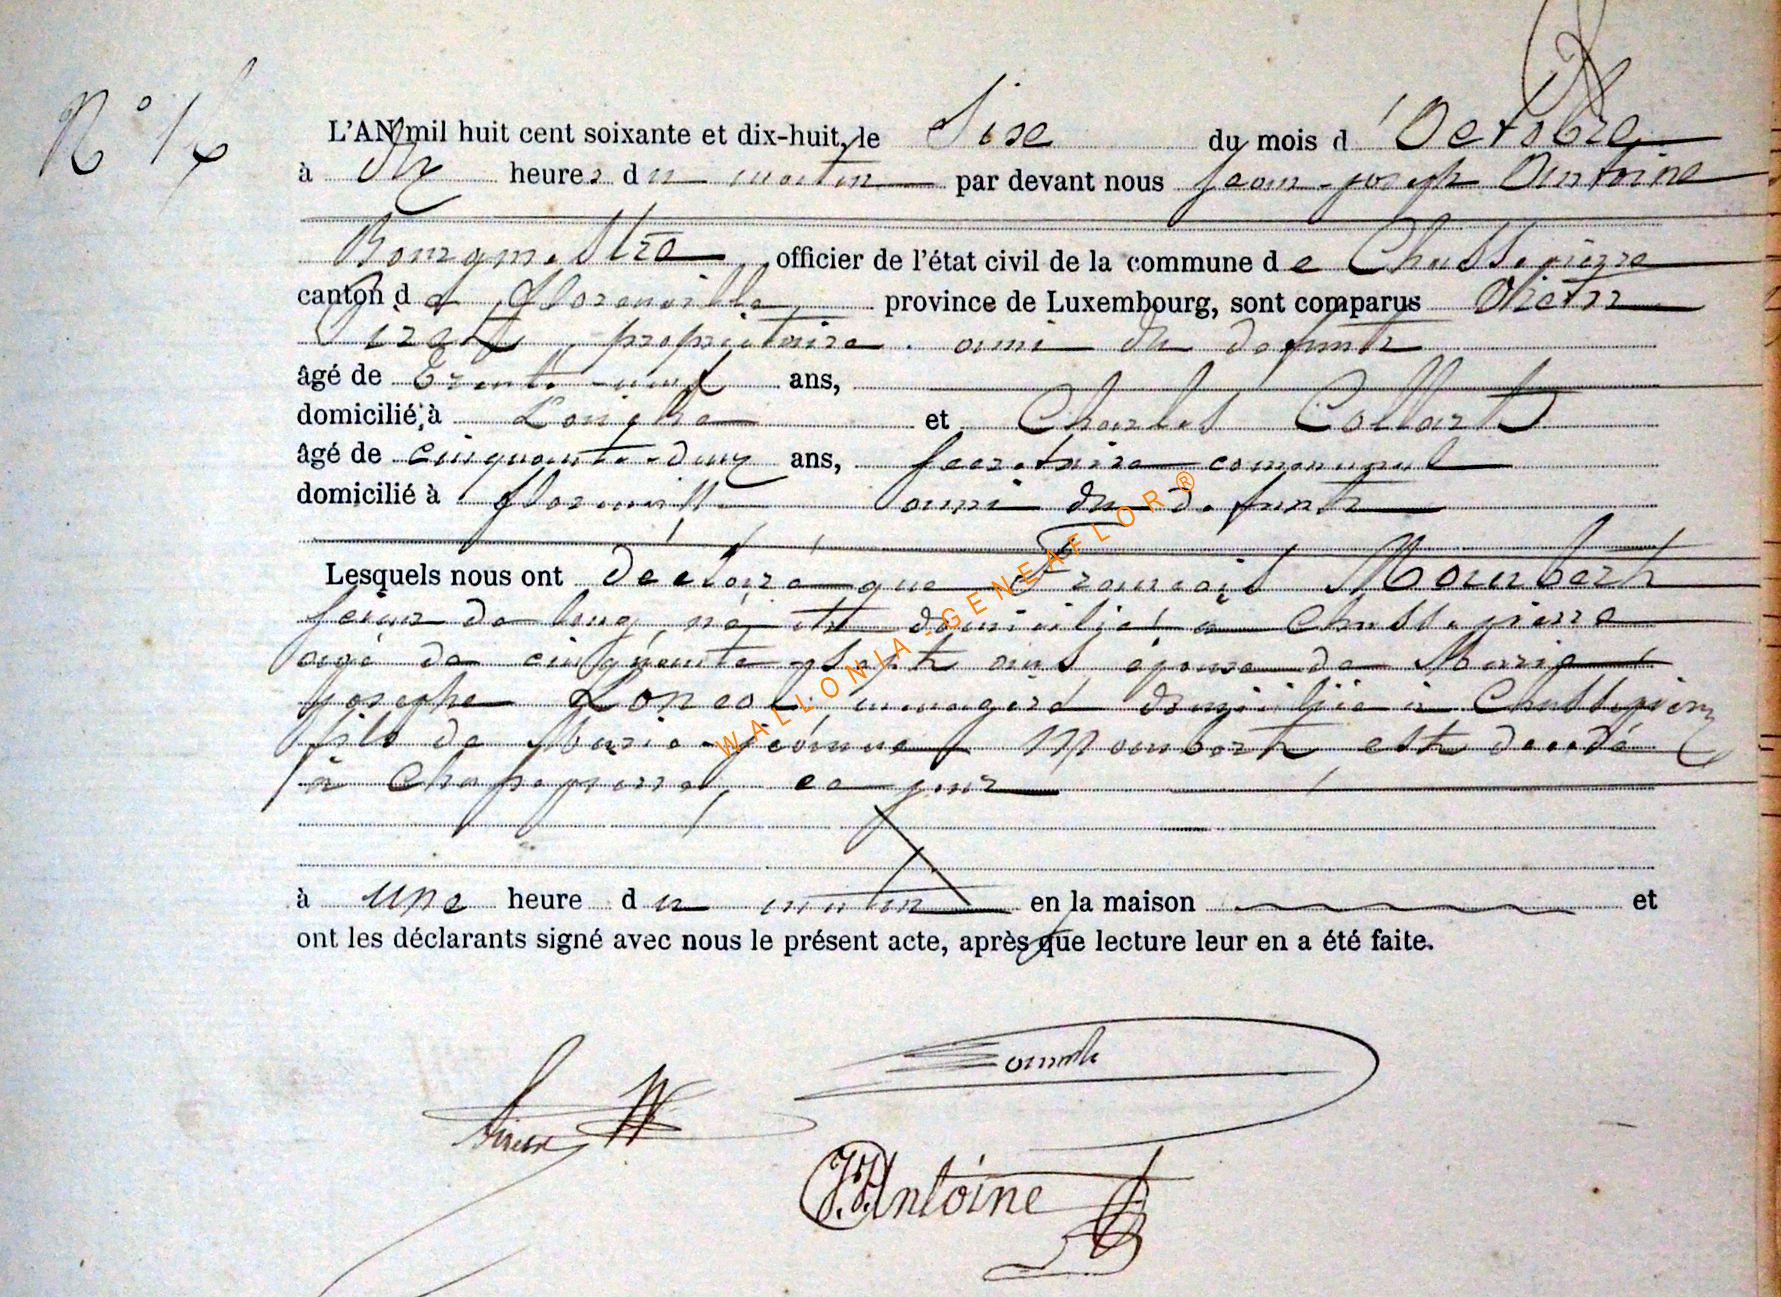 N° 16
L'AN mil huit cent soixante et dix-huit, le Sise du mois d'Octobre
à dix heures du matin par devant nous Jean-joseph Antoine
Bourgmestre officier de l'état civil de la commune de Chassepierre
canton de Florenville province de Luxembourg, sont comparus
propriétaire ami du defunt
âgé de Trente-neuf ans,
domicilié à et Charles Collart
âgé de cinquante-deux ans, secretaire communal
domicilié à florenville ami du defunt
Lesquels nous ont déclaré que François Mombert
scieur de long, né et domicilié à Chassepierre
agé de cinquante-sept ans époux de Marie
josephe ménagère domiciliée à Chassepierre
fils de Marie-jeanne Mombert est décédé
à Chassepierre, ce jour
à une heure du matin en la maison et
ont les déclarants signé avec nous le présent acte, après que lecture leur en a été faite.
J.J. Antoine
WALLONIA-GENEAFLOR®